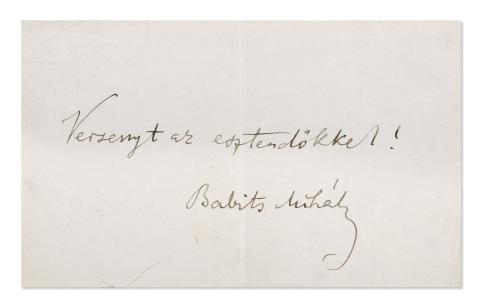 Versenyt az esztendőkkel!
Babits Mihály